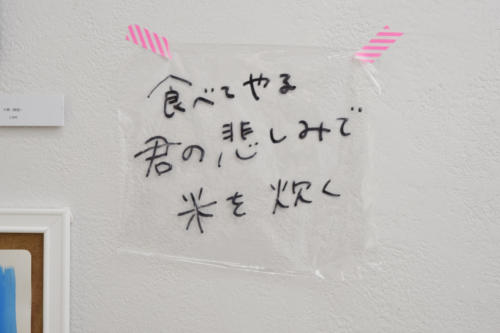 食べてやる
君の悲しみで
米を炊く